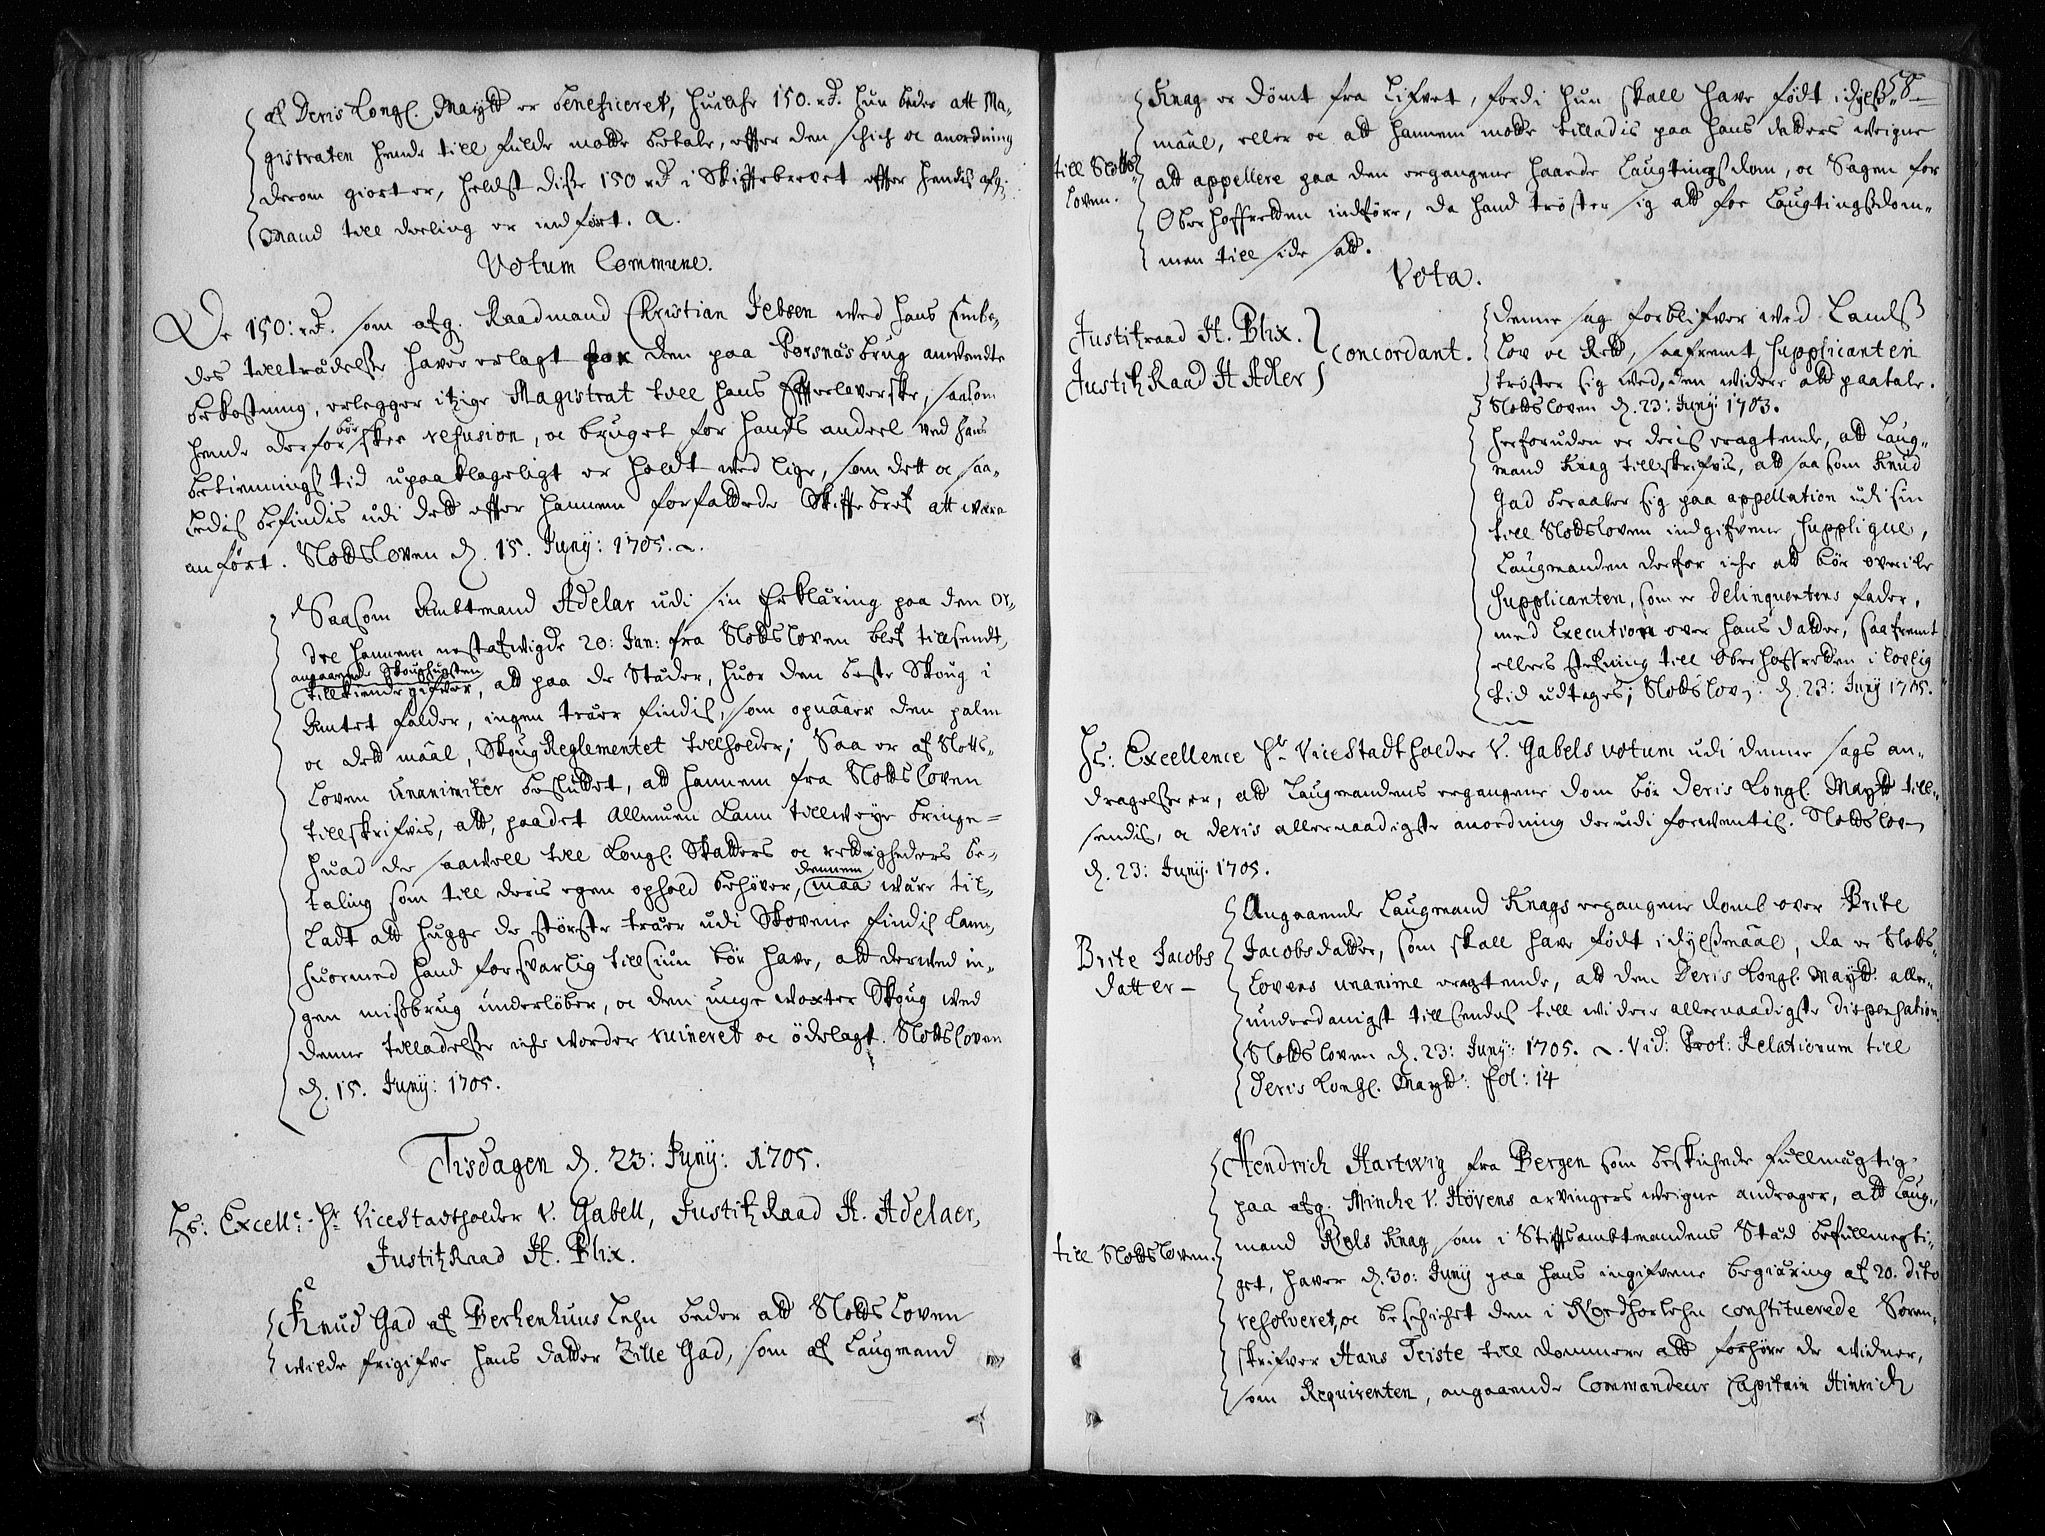 af Deris Kongl. Maytt er beneficeret, huilche 150. rd. hun beder att Ma-
gistraten hende till fulde motte betale, effter den schich oc anordning
derom giort er, heldst disse 150 rd i Skifftebrevet effter hendis afg:
Mand till deeling er indført.
Votum Commune.
De 150: rd. som afg. Raadmand Christian Jebsen wed hans Embe-
des tilltrædelsse haver erlagt for den paa Porsnæs brug anwendte
bekostning, erlegger itzige Magistrat till hans Effterleverske, saasom
hende derfor bør skee refusion, oc bruget for hands andeel wed hans
betienningstid upaaklageligt er holdt wed lige, som dett oc saa-
ledis befindis udi dett effter hannem forfattede Skiffte bref att være
anført. Slottsloven d. 15. Junij: 1705.
Saasom Ambtmand Adelar udi sin Erklæring paa den Or-
dre hannem nestafwigte 20: Jan: fra Slottsloven blef tillsendt,
angaaende Skoughugsten
tillkiende gifver, att paa de Stæder, huor den beste Skoug i
Amtet falder, ingen træer findis, som opnaar den palm
oc dett maal, Skoug Reglementet tillholder; Saa er af Slotts-
loven unanimiter besluttet, att hannem fra Slottsloven
tillskrifvis, att, paadet Allmuen kann tillweye bringe
huad de saawell till Kongl. Skatters oc rettigheders be-
taling som till deris egen ophold behøver, dennem maa være til-
ladt att hugge de største træer udi Skovene findis kan,
huormed hand forsvarlig tillsiun bør have, att derwed in-
gen missbrug underløber, oc den unge woxter Skoug wed
denne tilladelsse iche worder ruineret oc ødelagt. Slottsloven
d. 15. Junij: 1705.
Tisdagen d. 23: Junij: 1705.
Hs: Excell: Hr ViceStadtholder v. Gabell, Justitz Raad H. Adelaer,
Justitz Raad H. Blix.
Knud Gad af Berkenhuus Lehn beder att Slotts Loven
wilde frigifve hans datter Zille Gad, som af Laugmand
58
Knag er dømt fra Lifvet, fordi hun skall have født i dylss-
maal, eller oc att hannem motte tilladis paa hans datters weigne
att appellere paa den ergangene haarde Laugtingsdom, oc Sagen for
Oberhoffretten indføre, da hand trøster sig att faae Laugtingsdom-
men till side satt.
till Slotts
Loven.
Vota.
Justitzraad H. Blix.
Justitz Raad H Adler
concordant.
Denne sag forblifver wed Landss
Lov oc Rett, saafremt Supplicanten
trøster sig wed, den widere att paatale.
Slottsloven d. 23: Junij 1703.
herforuden er deris eragtende, att Laug-
mand Knag tillskrifvis, att saasom Knud
Gad beraaber sig paa appellation udi sin
till Slottsloven indgifvene Supplique,
Laugmanden derfor iche att bør overile
Supplicanten, som er Delinquentens fader,
med Execution over hans datter, saafremt
ellers stefning till Oberhoffretten i lovlig
tid udtages; Slottslov: d. 23: Junij 1705.
Hs: Excellence Hr ViceStadtholder V. Gabels votum udi denne sags an-
dragelsse er, att Laugmandens ergangene dom bør Deris Kongl. Maytt till-
sendis, oc deris allernaadigste anordning derudi forwentis. Slottslov
d. 23: Junij. 1705.
Brite Jacobs
datter -
Angaaende Laugmand Knags ergangene domb over Brite
Jacobsdatter, som skall have født i dylssmaal, da er Slotts-
lovens unanime eragtende, att den Deris Kongl. Maytt aller-
underdanigst tillsendes till widere allernaadigste dispensation.
Slottsloven d. 23: Junij: 1705. Vid: Prot: Relationum till
Deris Kongl. Maytt: fol: 14
Hendrich Hartwig fra Bergen som beskichede fullmægtig
paa afg. Minche V. Høvens arvingers weigne andrager, att Laug-
mand Niels Knag som i Stifftsambtmandens Stæd befullmegti-
get, haver d. 30: Junij paa hans ingifvene begiæring af 20. dito
resolveret, oc beschichet den i Nordhorlehn constituerede Soren-
skrifver Hans Teiste till dommere att forhøre de widner,
som Requirenten, angaaende Commandeur Capitain Hinrich
till Slottsloven.